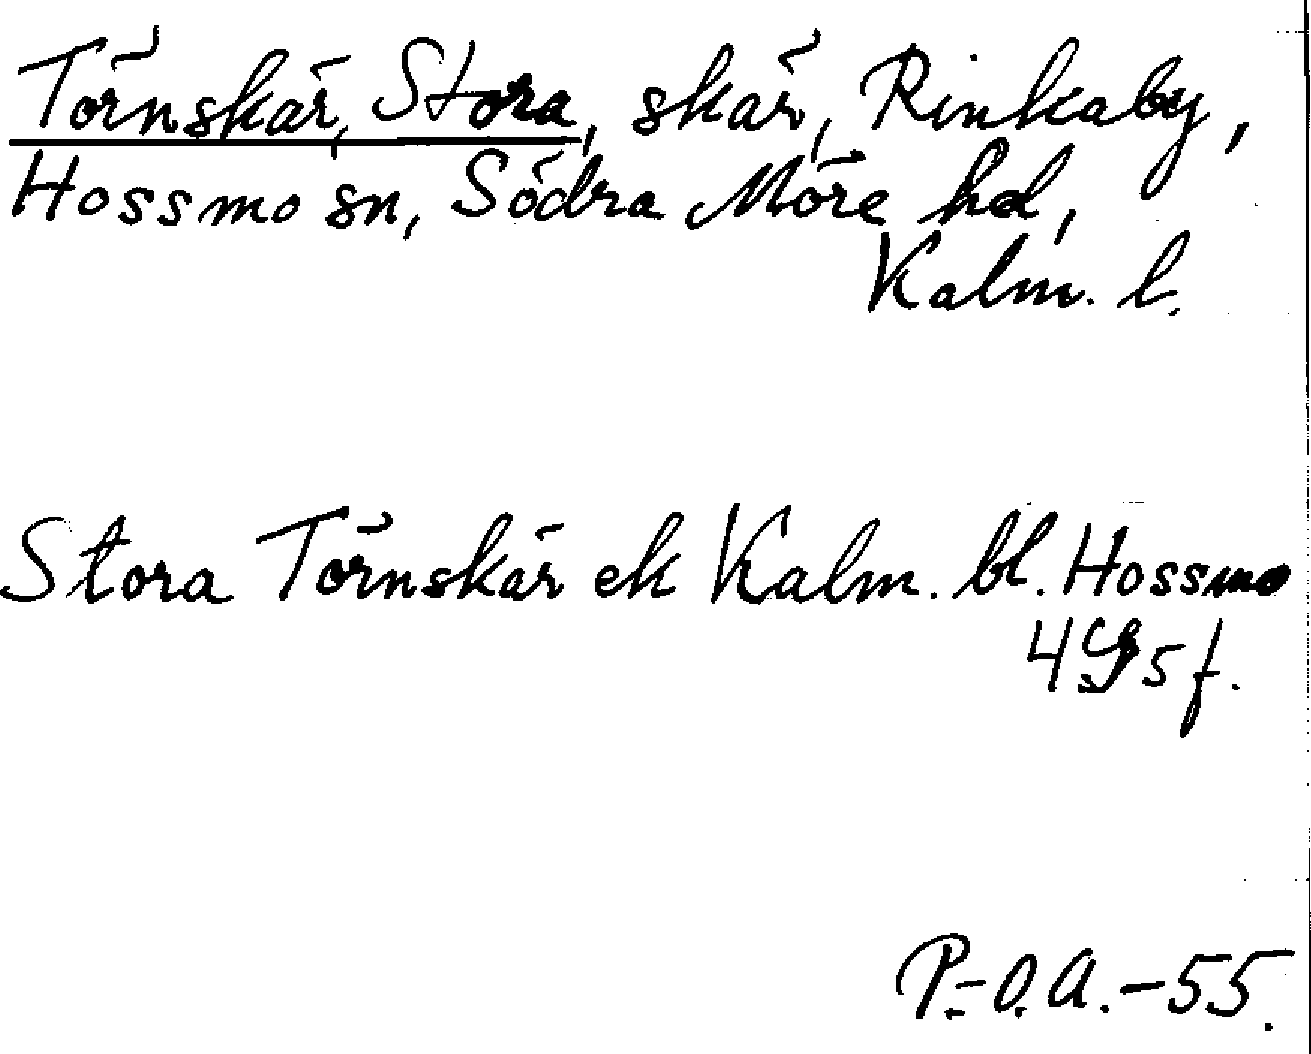 Törnskär, Stora, skär, Rinkaby,
Hossmo sn, Södra Möre hd,
Kalm. l.
Stora Törnskär ek Kalm. bl. Hossmo
4G5f.
P.-O.A.-55.